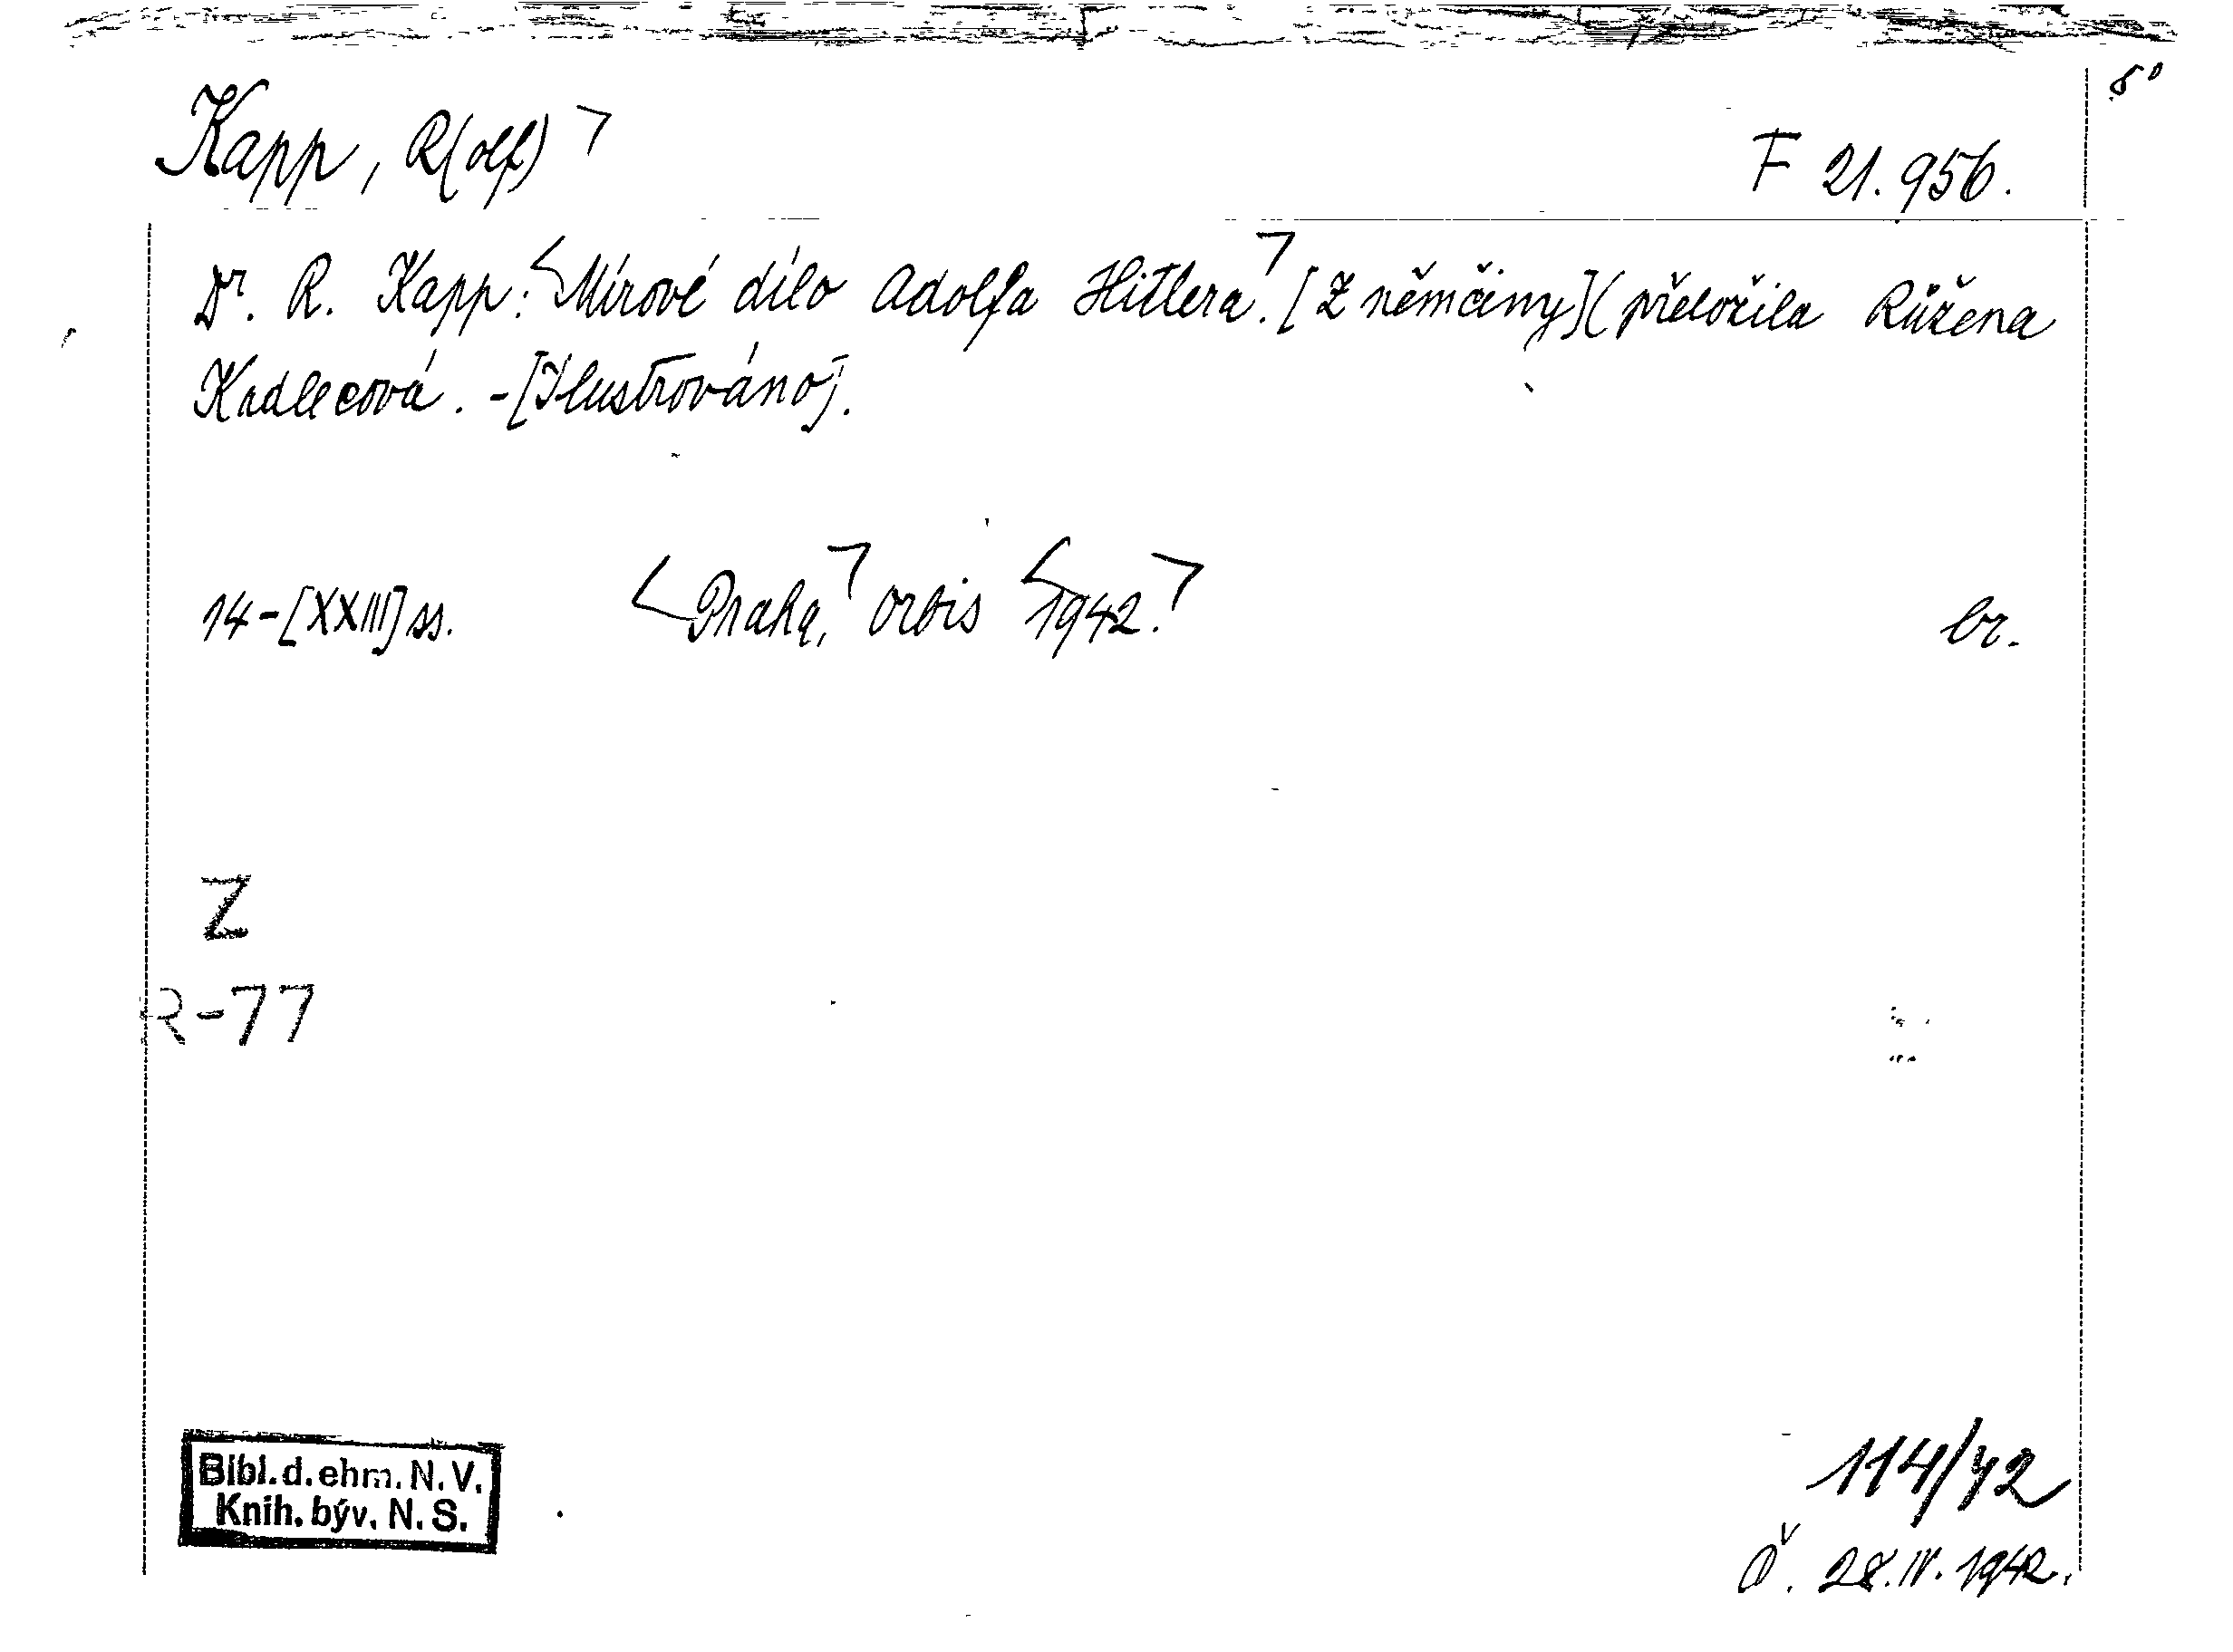 8°
Kapp, R(olf) ㄱ F 21.956.
Dr. R. Kapp: <Mírové dílo Adolfa Hitlera.ㄱ [Z němčiny] (přeložila Růžena
Kadlecová. - [Ilustrováno].
14-[XXIII] ss. <Praha,ㄱ Orbis <1942.ㄱ br.
Z
R-77
Bibl. d. ehm. N. V.
Knih. býv. N. S.
114/42
Č. 28.IV.1942.